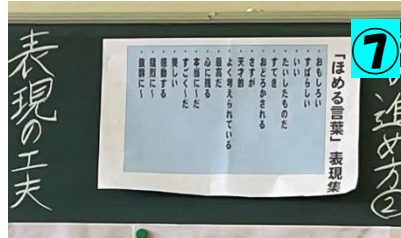 ⑦
進め方②
「ほめる言葉」表現集
・おもしろい
・すばらしい
・いい
・たいしたものだ
・すてき
・おどろかされる
・さすが
・天才的
・よく考えられている
・最高だ
・心に残る
・本当に~だ
・すごく~だ
・美しい
・感動する
・強烈に~
・抜群に~
表現の工夫